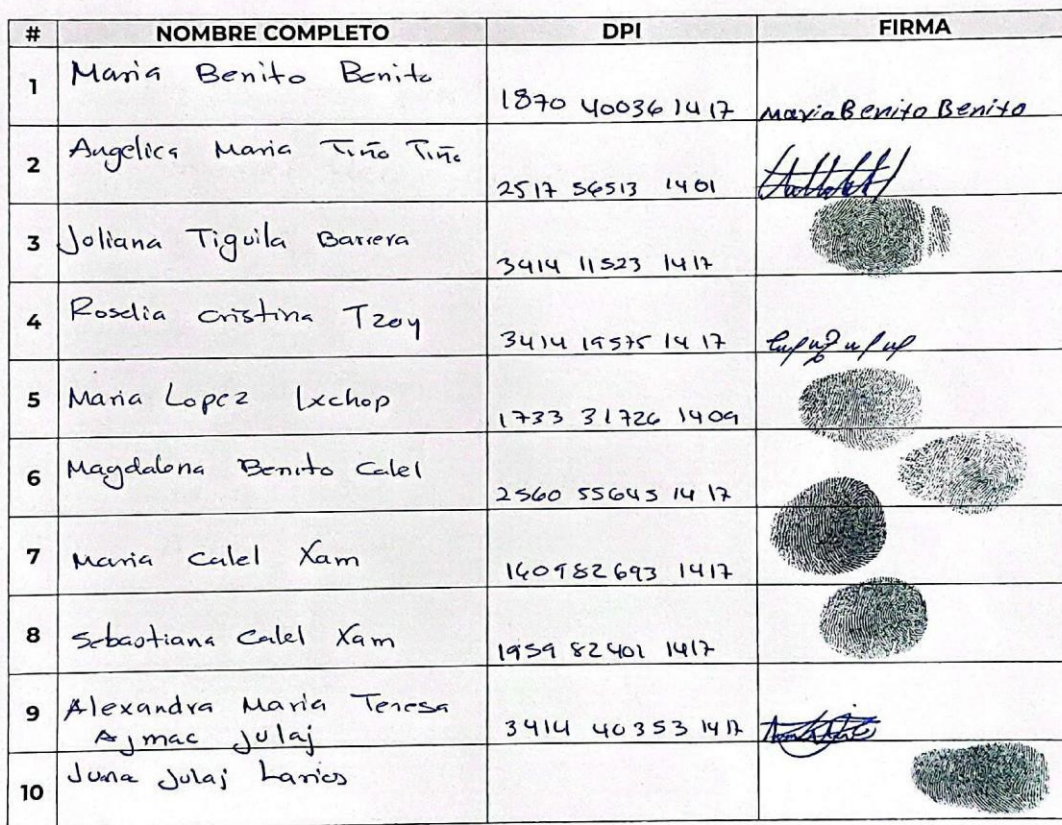 # NOMBRE COMPLETO DPI FIRMA
1 Maria Benito Benito 1870 40036 1417 Maria Benito Benito
2 Angelica Maria Tiño Tiño 2517 56513 1401
3 Joliana Tiguila Barrera 3414 11523 1417
4 Roselia Cristina Tzoy 3414 19575 1417
5 Maria Lopez Ixchop 1733 31726 1409
6 Magdalena Benito Calel 2560 55645 1417
7 Maria Calel Xam 160982693 1417
8 Sebastiana Calel Xam 1959 82401 1417
9 Alexandra Maria Teresa 3414 40353 1417
Ajmac Julaj
10 Juna Julaj Larios